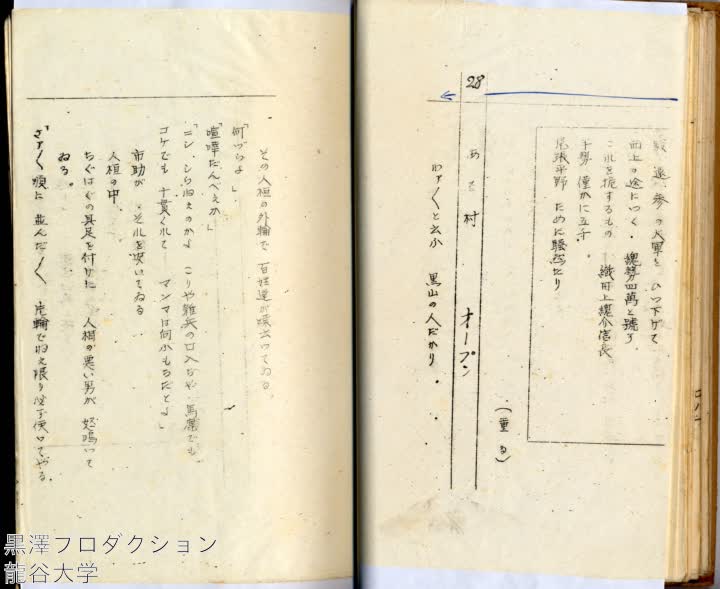 駿遠参の大軍を ひつ下げて
西上の途につく。 総勢四萬と號す
これを扼するもの 織田上總介信長
手勢 僅かに五千
尾張平野 ために騒然たり
(重る)
28 ある村 オープン
わア〱と云ふ 黒山の人だかり。
その人垣の外輪で 百姓達が喋云つてゐる。
「何づらよ」
「喧嘩だんべえか」
「ニン しらねえのかよ こりや雑兵の口入ぢや 馬鹿でも
コケでも 十貫くれて マンマは何ふもちだとよ」
市助が それを聞いてゐる
人垣の中。
ちぐはぐの具足を付けた 人相の悪い男が 怒鳴つて
ゐる。
「さア〱 順に 並んだ〱 片輪でねえ限り 必ず使つてやる
黒澤プロダクション
龍谷大学